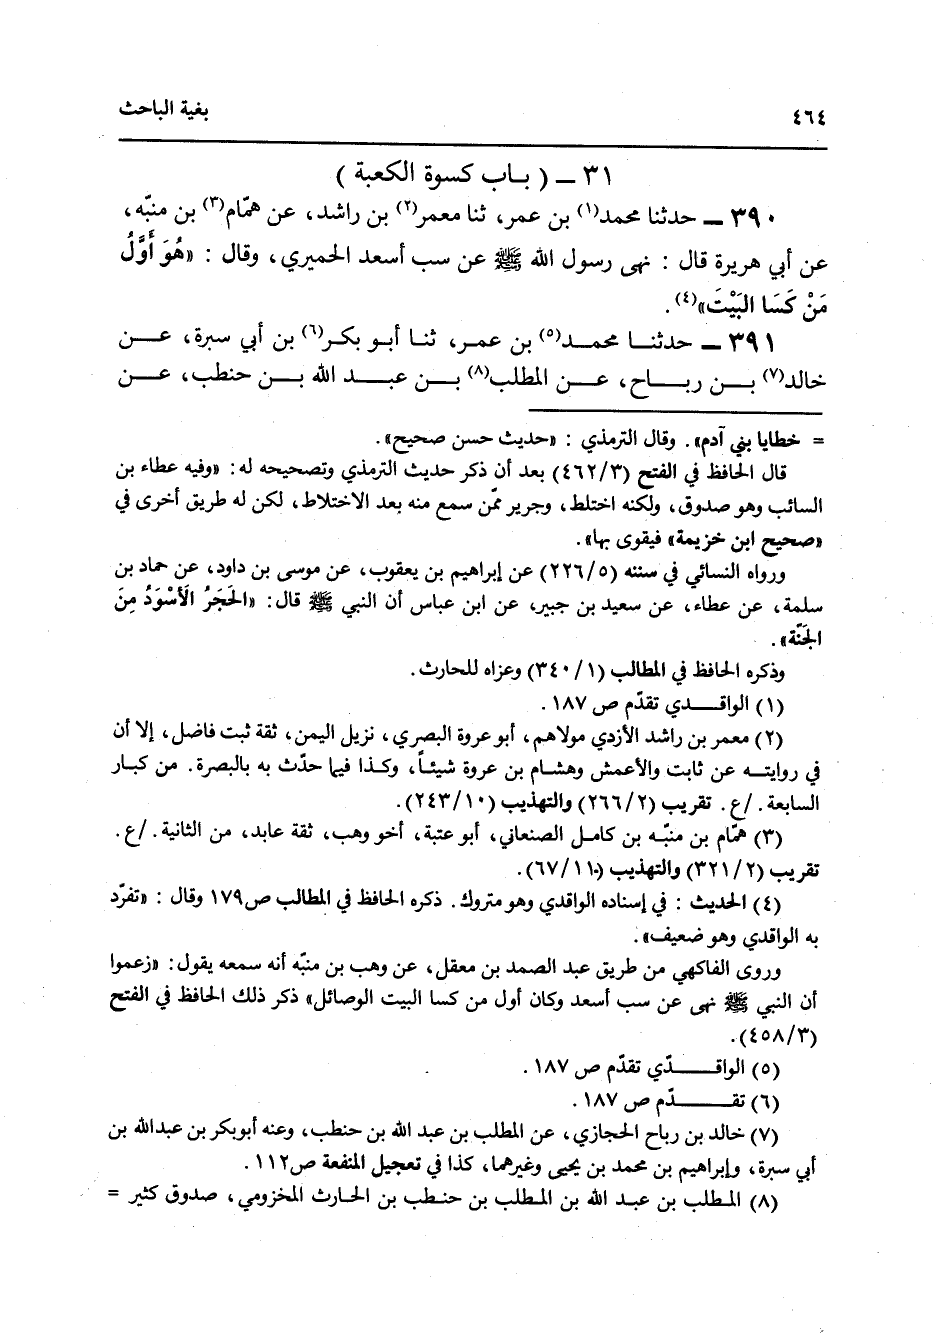 ٤٦٤ بغية الباحث
٣١ ــ ( بـاب كسوة الكعبة )
٣٩٠ ــ حدثنا محمد(١) بن عمر، ثنا معمر(٢) بن راشد، عن همّام(٣) بن منبّه،
عن أبي هريرة قال : نهى رسول الله ﷺ عن سب أسعد الحميري، وقال : «هُوَ أَوَّلُ
مَنْ كَسَا البَيْتَ»(٤).
٣٩١ ــ حدثنـا محمـد(٥) بن عمـر، ثنـا أبـو بكـر(٦) بن أبي سبرة، عـن
خالد(٧) بـن ربـاح، عـن المطلب(٨) بـن عبـد الله بـن حنطب، عـن
= خطايا بني آدم». وقال الترمذي : «حديث حسن صحيح».
قال الحافظ في الفتح (٤٦٢/٣) بعد أن ذكر حديث الترمذي وتصحيحه له: «وفيه عطاء بن
السائب وهو صدوق، ولكنه اختلط، وجرير ممّن سمع منه بعد الاختلاط، لكن له طريق أخرى في
«صحيح ابن خزيمة» فيقوى بها».
ورواه النسائي في سننه (٢٢٦/٥) عن إبراهيم بن يعقوب، عن موسى بن داود، عن حماد بن
سلمة، عن عطاء، عن سعيد بن جبير، عن ابن عباس أن النبي ﷺ قال: «الحَجَرُ الأَسْوَدُ مِنَ
الجَنّة».
وذكره الحافظ في المطالب (٣٤٠/١) وعزاه للحارث.
(١) الواقـدي تقدّم ص ١٨٧.
(٢) معمر بن راشد الأزدي مولاهم، أبو عروة البصري، نزيل اليمن، ثقة ثبت فاضل، إلا أن
في روايتـه عن ثابت والأعمش وهشـام بن عروة شيئـاً، وكـذا فيما حدّث به بالبصرة. من كبـار
السابعة. /ع. تقريب (٢٦٦/٢) والتهذيب (٢٤٣/١٠).
(٣) همّام بن منبّـه بن كامـل الصنعاني، أبو عتبة، أخو وهب، ثقة عابد، من الثانية. /ع.
تقريب (٣٢١/٢) والتهذيب (٦٧/١١).
(٤) الحديث : في إسناده الواقدي وهو متروك. ذكره الحافظ في المطالب ص١٧٩ وقال : «تفرّد
به الواقدي وهو ضعيف».
وروى الفاكهي من طريق عبد الصمد بن معقل، عن وهب بن منبّه أنه سمعه يقول: «زعموا
أن النبي ﷺ نهى عن سب أسعد وكان أول من كسا البيت الوصائل» ذكر ذلك الحافظ في الفتح
(٤٥٨/٣).
(٥) الواقـدّي تقدّم ص ١٨٧.
(٦) تقـدّم ص ١٨٧.
(٧) خالد بن رباح الحجازي، عن المطلب بن عبد الله بن حنطب، وعنه أبوبكر بن عبدالله بن
أبي سبرة، وإبراهيم بن محمد بن يحيى وغيرهما، كذا في تعجيل المنفعة ص١١٢.
(٨) المـطلب بن عبـد الله بن المـطلب بن حنـطب بن الحـارث المخزومي، صدوق كثير =